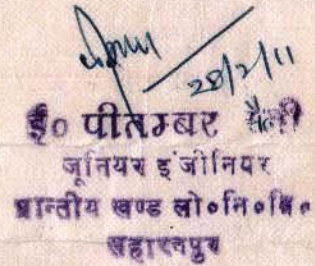 28/2/11
ई० पीतम्बर सैनी
जूनियर इंजीनियर
प्रान्तीय खण्ड लो०नि०वि०
सहारनपुर